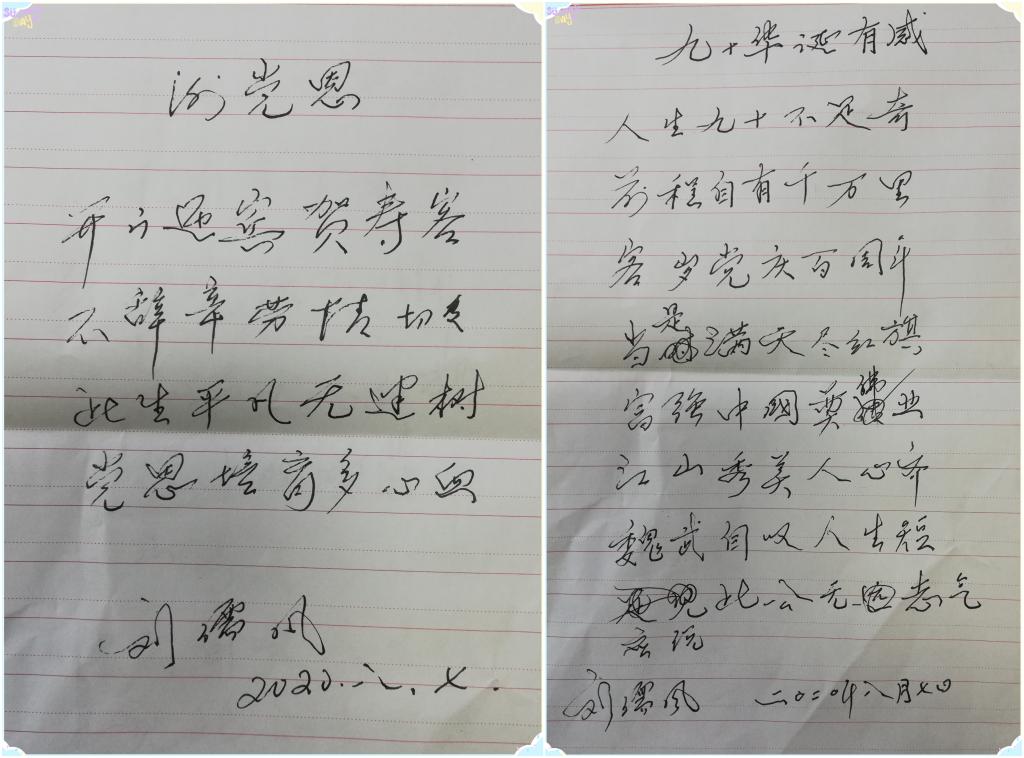 谢党恩
开门迎客贺寿客
不辞辛劳情切切
此生平凡无建树
党恩培育多心血
刘儒风
2020.八.七.
九十华诞有感
人生九十不足奇
前程自有千万里
客岁党庆百周年
当是满天尽红旗
富强中国奠伟业
江山秀美人心齐
魏武自叹人生短
此公无志气
应说
刘儒风 二〇二〇年八月七日